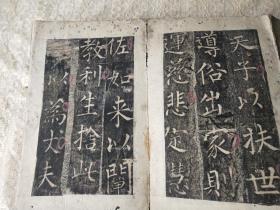 天子以扶世
導俗出家則
運慈悲定慧
佐如来以闡
教利生捨此
以為丈夫